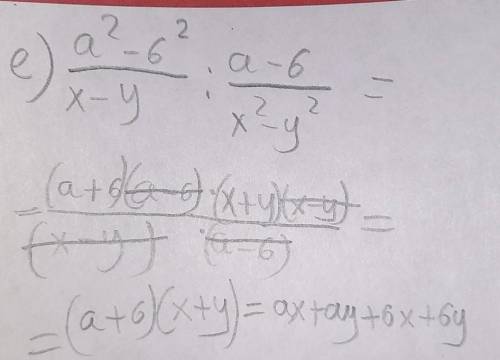 e) (a² - 6²)/(x - y) : (a - 6)/(x² - y²) =
= ((a + 6)(a - 6) · (x + y)(x - y))/((x - y) · (a - 6)) =
= (a + 6)(x + y) = ax + ay + 6x + 6y